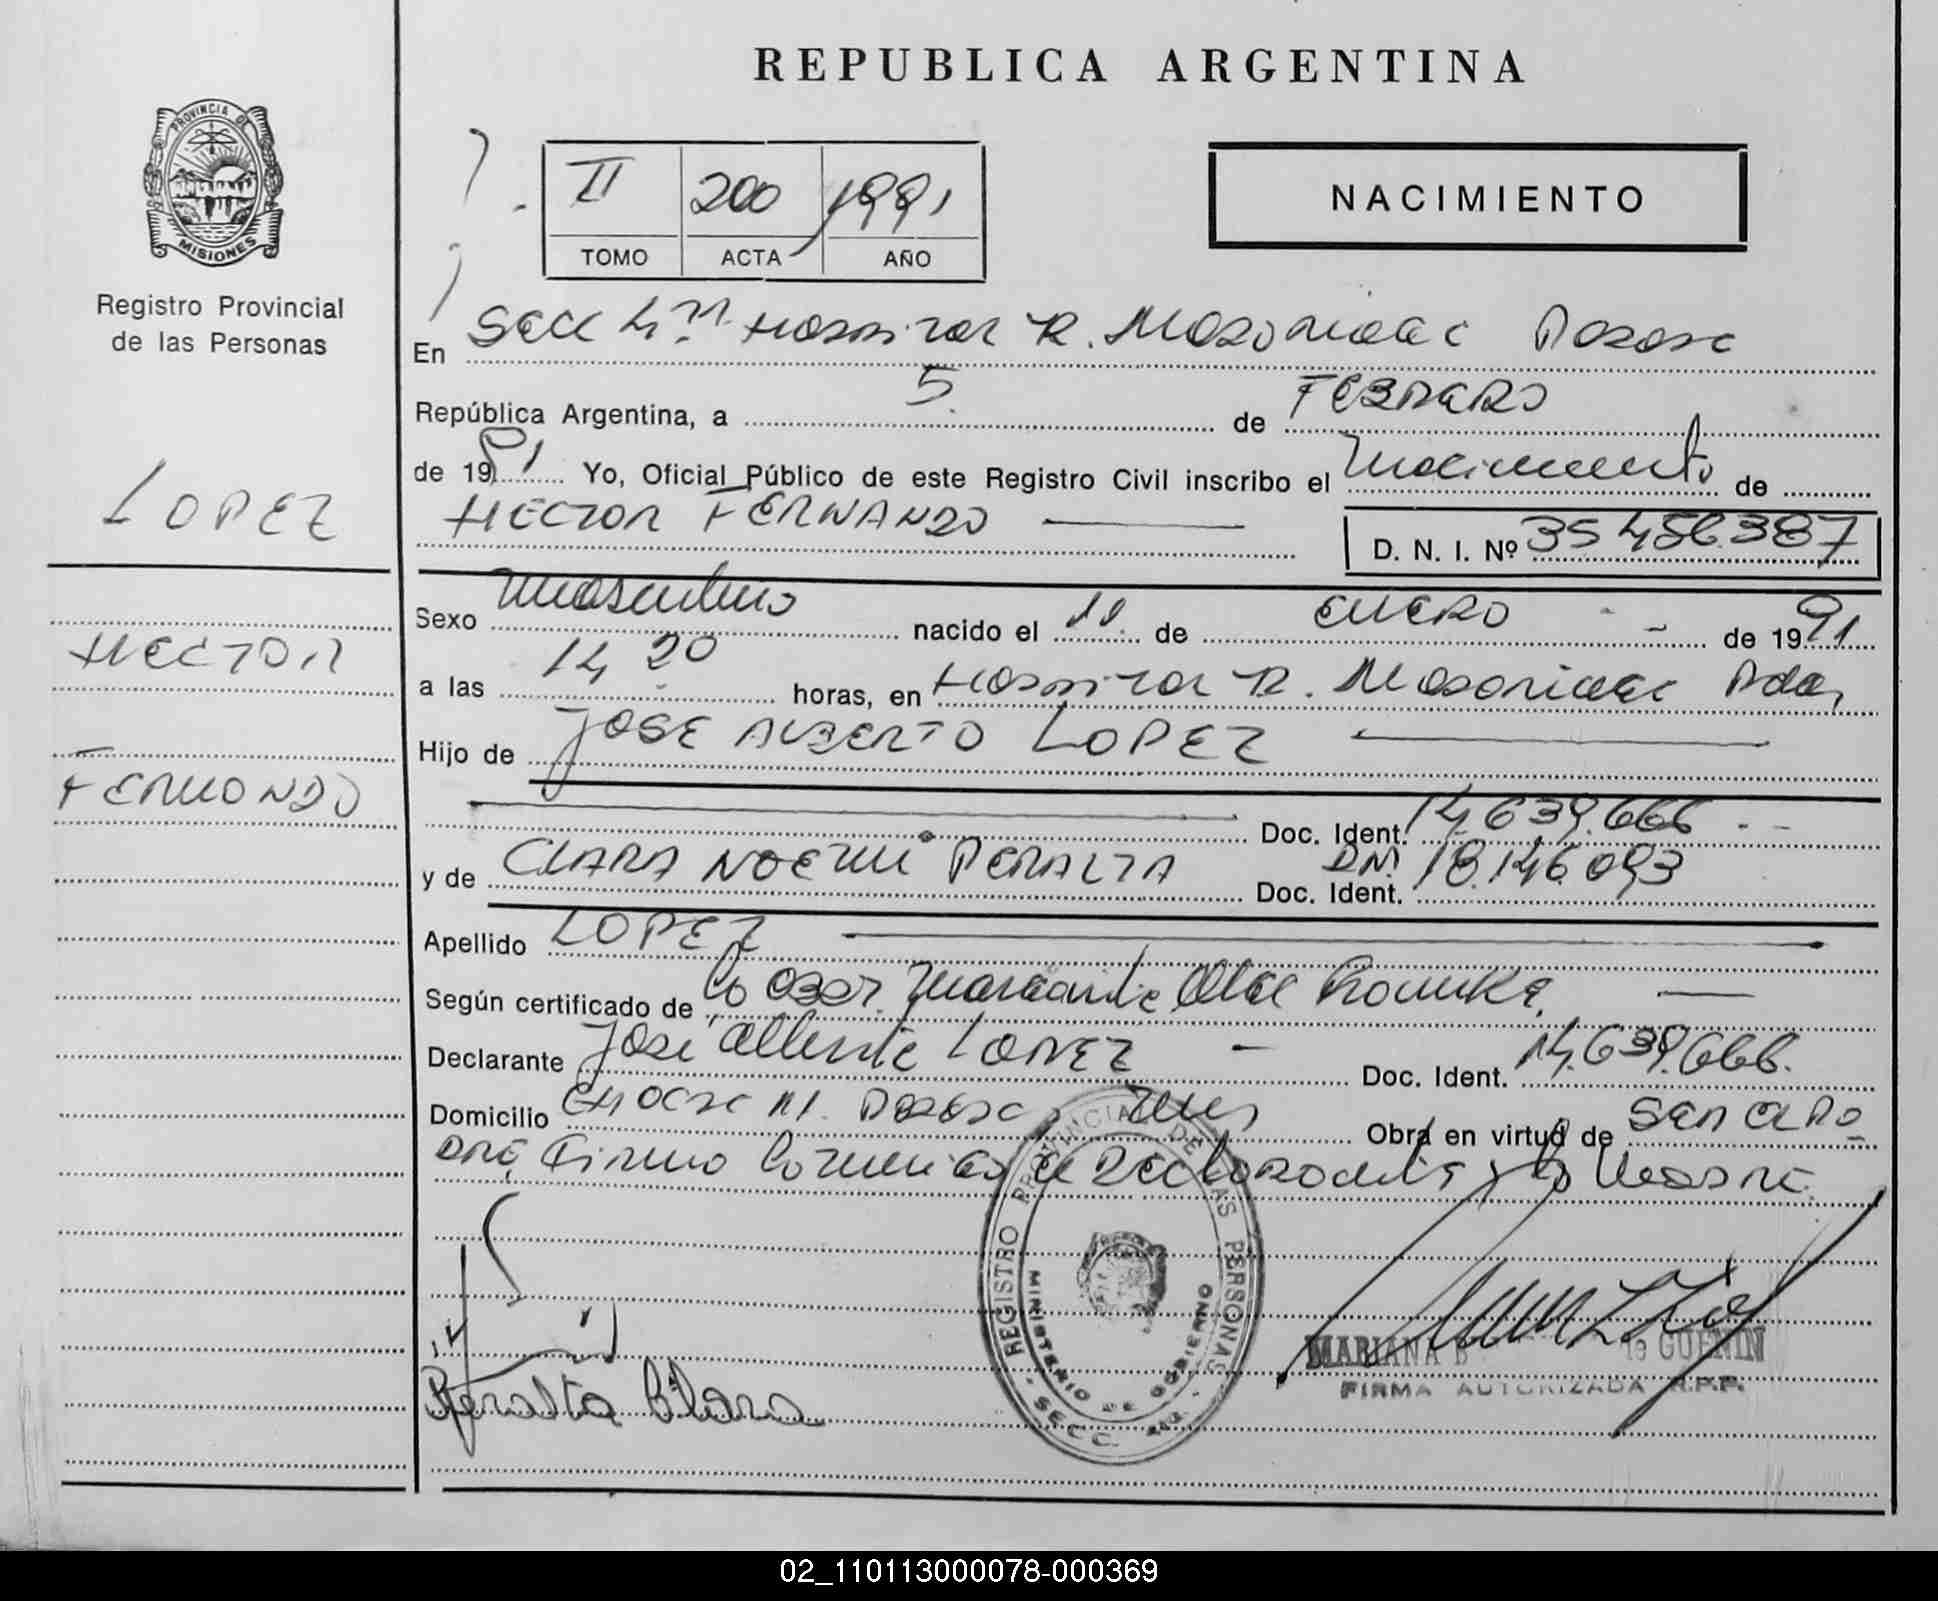 REPUBLICA ARGENTINA
PROVINCIA DE
MISIONES
Registro Provincial
de las Personas
II 200 1991
TOMO ACTA AÑO
NACIMIENTO
En Secc 4ta Hospital R. Posadas
República Argentina, a 5 de FEBRERO
de 1991 Yo, Oficial Público de este Registro Civil inscribo el Nacimiento de
HECTOR FERNANDO D. N. I. Nº 35.456.387
LOPEZ
HECTOR
FERNANDO
Sexo Masculino nacido el 11 de ENERO de 1991
a las 14 20 horas, en Hospital R. Pdas,
Hijo de JOSE ALBERTO LOPEZ
Doc. Ident. 14.639.666
y de CLARA NOEMI PERALTA Doc. Ident. DNI. 18.146.093
Apellido LOPEZ
Según certificado de la Obst.
Declarante Jose Alberto LOPEZ Doc. Ident. 14.639.666.
Domicilio Posadas, Mnes Obra en virtud de
Firma el Declarante y la Madre.
Peralta Clara
REGISTRO PROVINCIAL DE LAS PERSONAS
MINISTERIO DE GOBIERNO
SECC.
MARIANA B de GUENIN
FIRMA AUTORIZADA R.P.P.
02_110113000078-000369